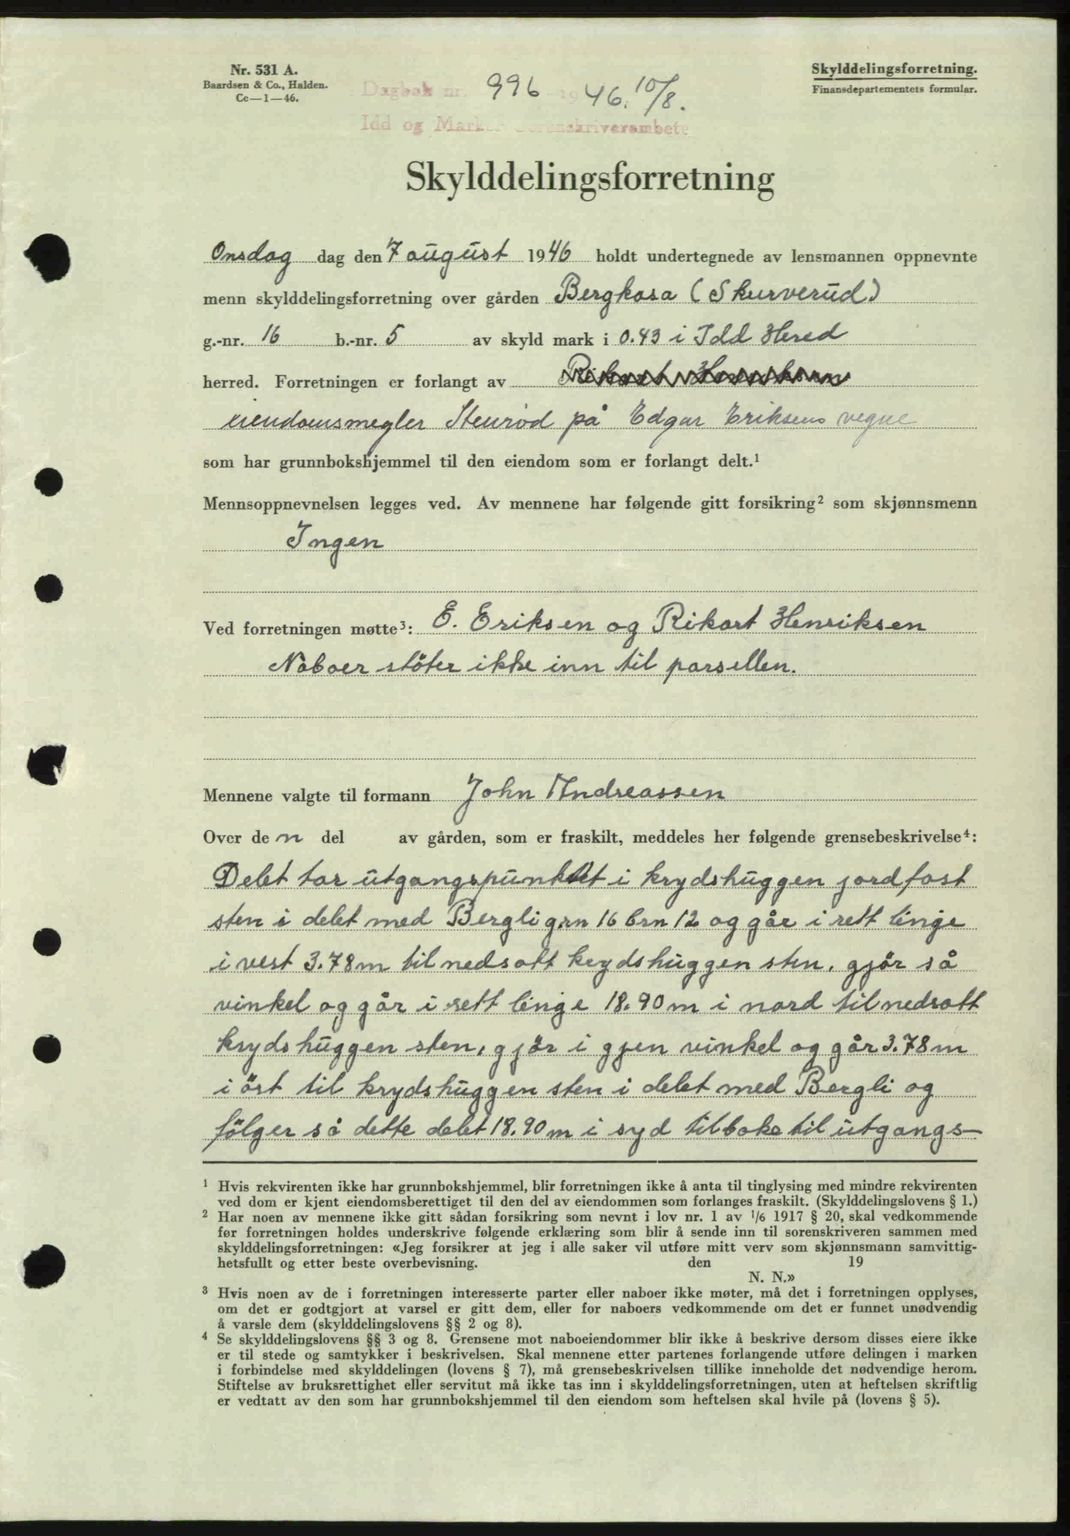 Nr. 531 A.
Baardsen & Co., Halden.
Cc—1—46.
Skylddelingsforretning.
Finansdepartementets formular.
Dagbok nr. 996 19 46. 10/8.
Idd og Marker sorenskriverembete
Skylddelingsforretning
Onsdag dag den 7 august 1946 holdt undertegnede av lensmannen oppnevnte
menn skylddelingsforretning over gården Bergkasa (Skurverud)
g.-nr. 16 b.-nr. 5 av skyld mark i 0.43 i Idd Hered
herred. Forretningen er forlangt av Rikart Henriksen
eiendomsmegler Stenrød på Edgar Eriksens vegne
som har grunnbokshjemmel til den eiendom som er forlangt delt.¹
Mennsoppnevnelsen legges ved. Av mennene har følgende gitt forsikring² som skjønnsmenn
Ingen
Ved forretningen møtte³: E. Eriksen og Rikart Henriksen
Naboer støter ikke inn til parsellen.
Mennene valgte til formann John Andreassen
Over den del av gården, som er fraskilt, meddeles her følgende grensebeskrivelse⁴:
Delet tar utgangspunktet i krydshuggen jordfast
sten i delet med Bergli grn 16 brn 12 og går i rett linje
i vest 3.78 m til nedsatt krydshuggen sten, gjør så
vinkel og går i rett linje 18.90 m i nord til nedsatt
krydshuggen sten, gjør i gjen vinkel og går 3.78 m
i øst til krydshuggen sten i delet med Bergli og
følger så dette delet 18.90 m i syd tilbake til utgangs-
¹ Hvis rekvirenten ikke har grunnbokshjemmel, blir forretningen ikke å anta til tinglysing med mindre rekvirenten
ved dom er kjent eiendomsberettiget til den del av eiendommen som forlanges fraskilt. (Skylddelingslovens § 1.)
² Har noen av mennene ikke gitt sådan forsikring som nevnt i lov nr. 1 av 1/6 1917 § 20, skal vedkommende
før forretningen holdes underskrive følgende erklæring som blir å sende inn til sorenskriveren sammen med
skylddelingsforretningen: «Jeg forsikrer at jeg i alle saker vil utføre mitt verv som skjønnsmann samvittig-
hetsfullt og etter beste overbevisning. den 19
N. N.»
³ Hvis noen av de i forretningen interesserte parter eller naboer ikke møter, må det i forretningen opplyses,
om det er godtgjort at varsel er gitt dem, eller for naboers vedkommende om det er funnet unødvendig
å varsle dem (skylddelingslovens §§ 2 og 8).
⁴ Se skylddelingslovens §§ 3 og 8. Grensene mot naboeiendommer blir ikke å beskrive dersom disses eiere ikke
er til stede og samtykker i beskrivelsen. Skal mennene etter partenes forlangende utføre delingen i marken
i forbindelse med skylddelingen (lovens § 7), må grensebeskrivelsen tillike inneholde det nødvendige herom.
Stiftelse av bruksrettighet eller servitut må ikke tas inn i skylddelingsforretningen, uten at heftelsen skriftlig
er vedtatt av den som har grunnbokshjemmel til den eiendom som heftelsen skal hvile på (lovens § 5).